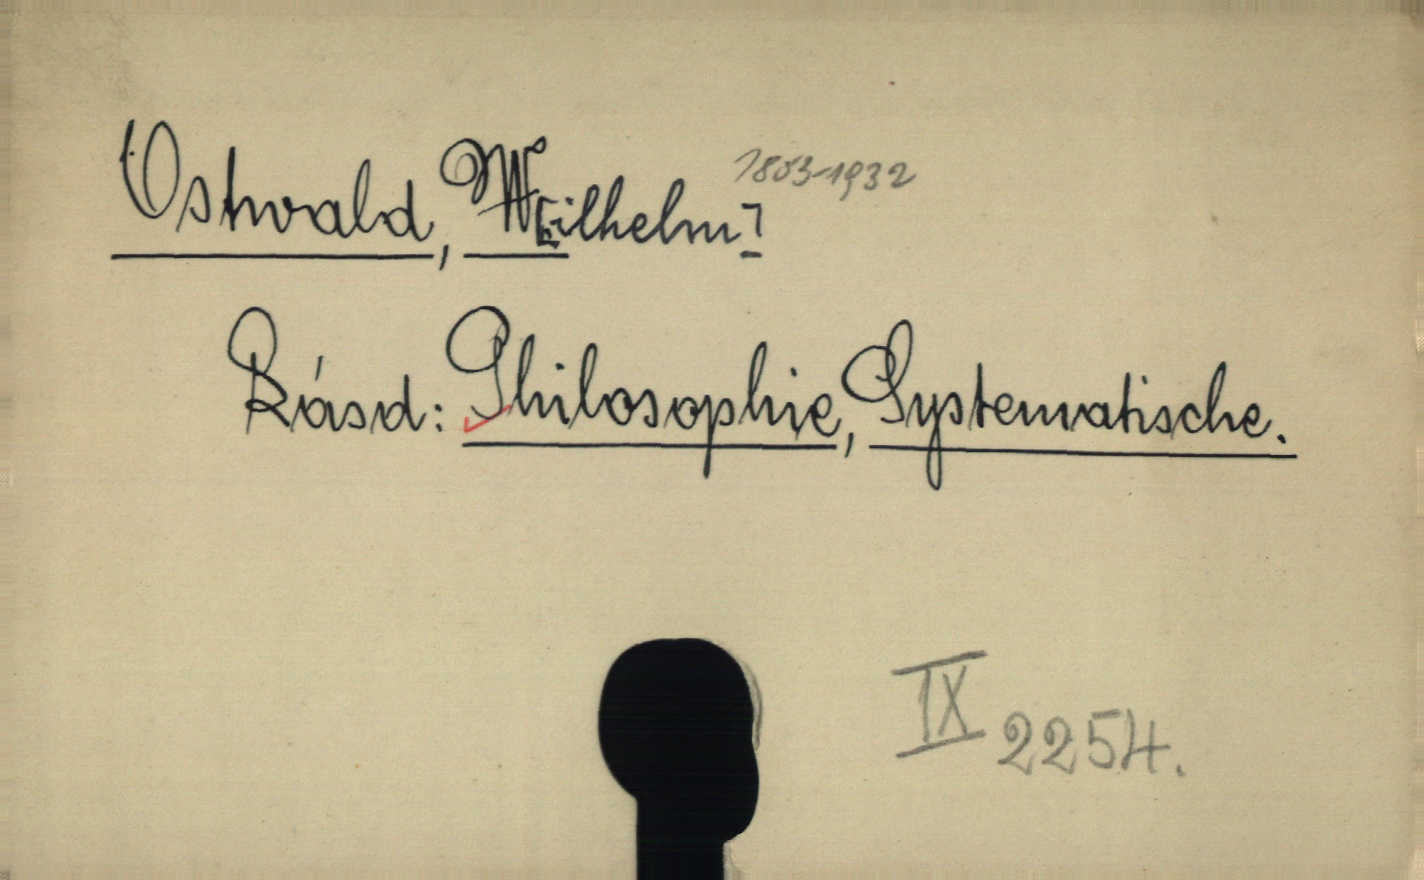 Ostwald, W[ilhelm] 1853-1932
Lásd: Philosophie, Systematische.
IX 2254.